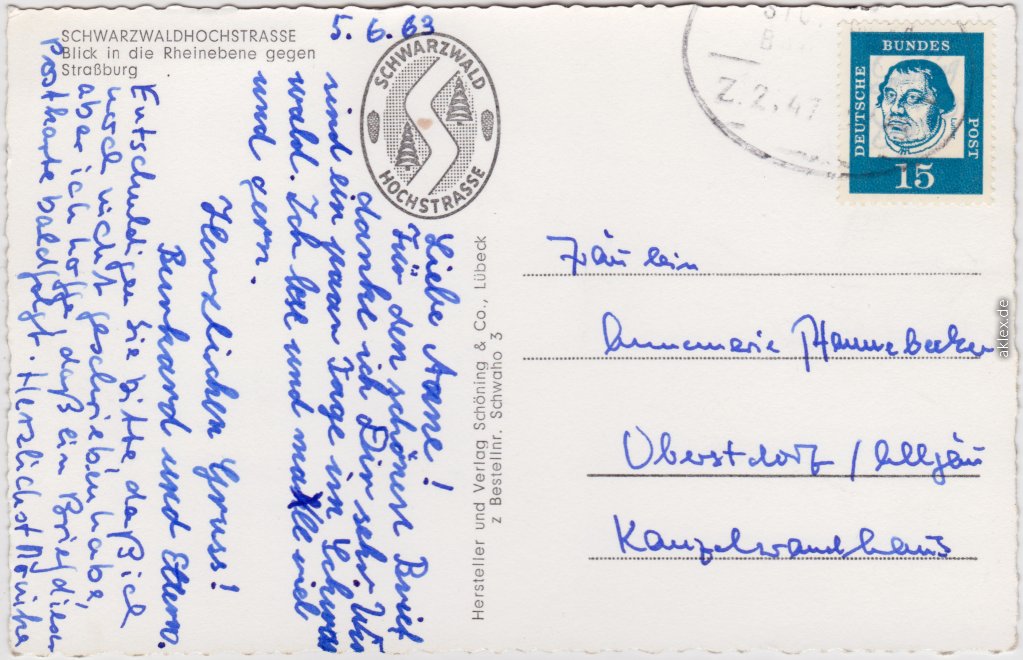 SCHWARZWALDHOCHSTRASSE
Blick in die Rheinebene gegen
Straßburg
5. 6. 63
SCHWARZWALD
HOCHSTRASSE
Liebe Anne!
Für den schönen Brief
danke ich Dir sehr. Wir
sind ein paar Tage im Schwarz
wald. Ich lese und malle viel
und gern.
Herzlichen Gruss!
Burkard und Eltern.
Entschuldigen Sie bitte, daß ich
noch nicht geschrieben habe,
aber ich hoffe, daß ein Brief dieser
Postkarte bald folgt. Herzlichst
Hersteller und Verlag Schöning & Co., Lübeck
z Bestellnr. Schwaho 3
Z. 2.47
DEUTSCHE
BUNDES
POST
15
Fräulein
Annemarie Pfannebecker
Oberstdorf / Allgäu
Kanzelwandhaus
aklex.de